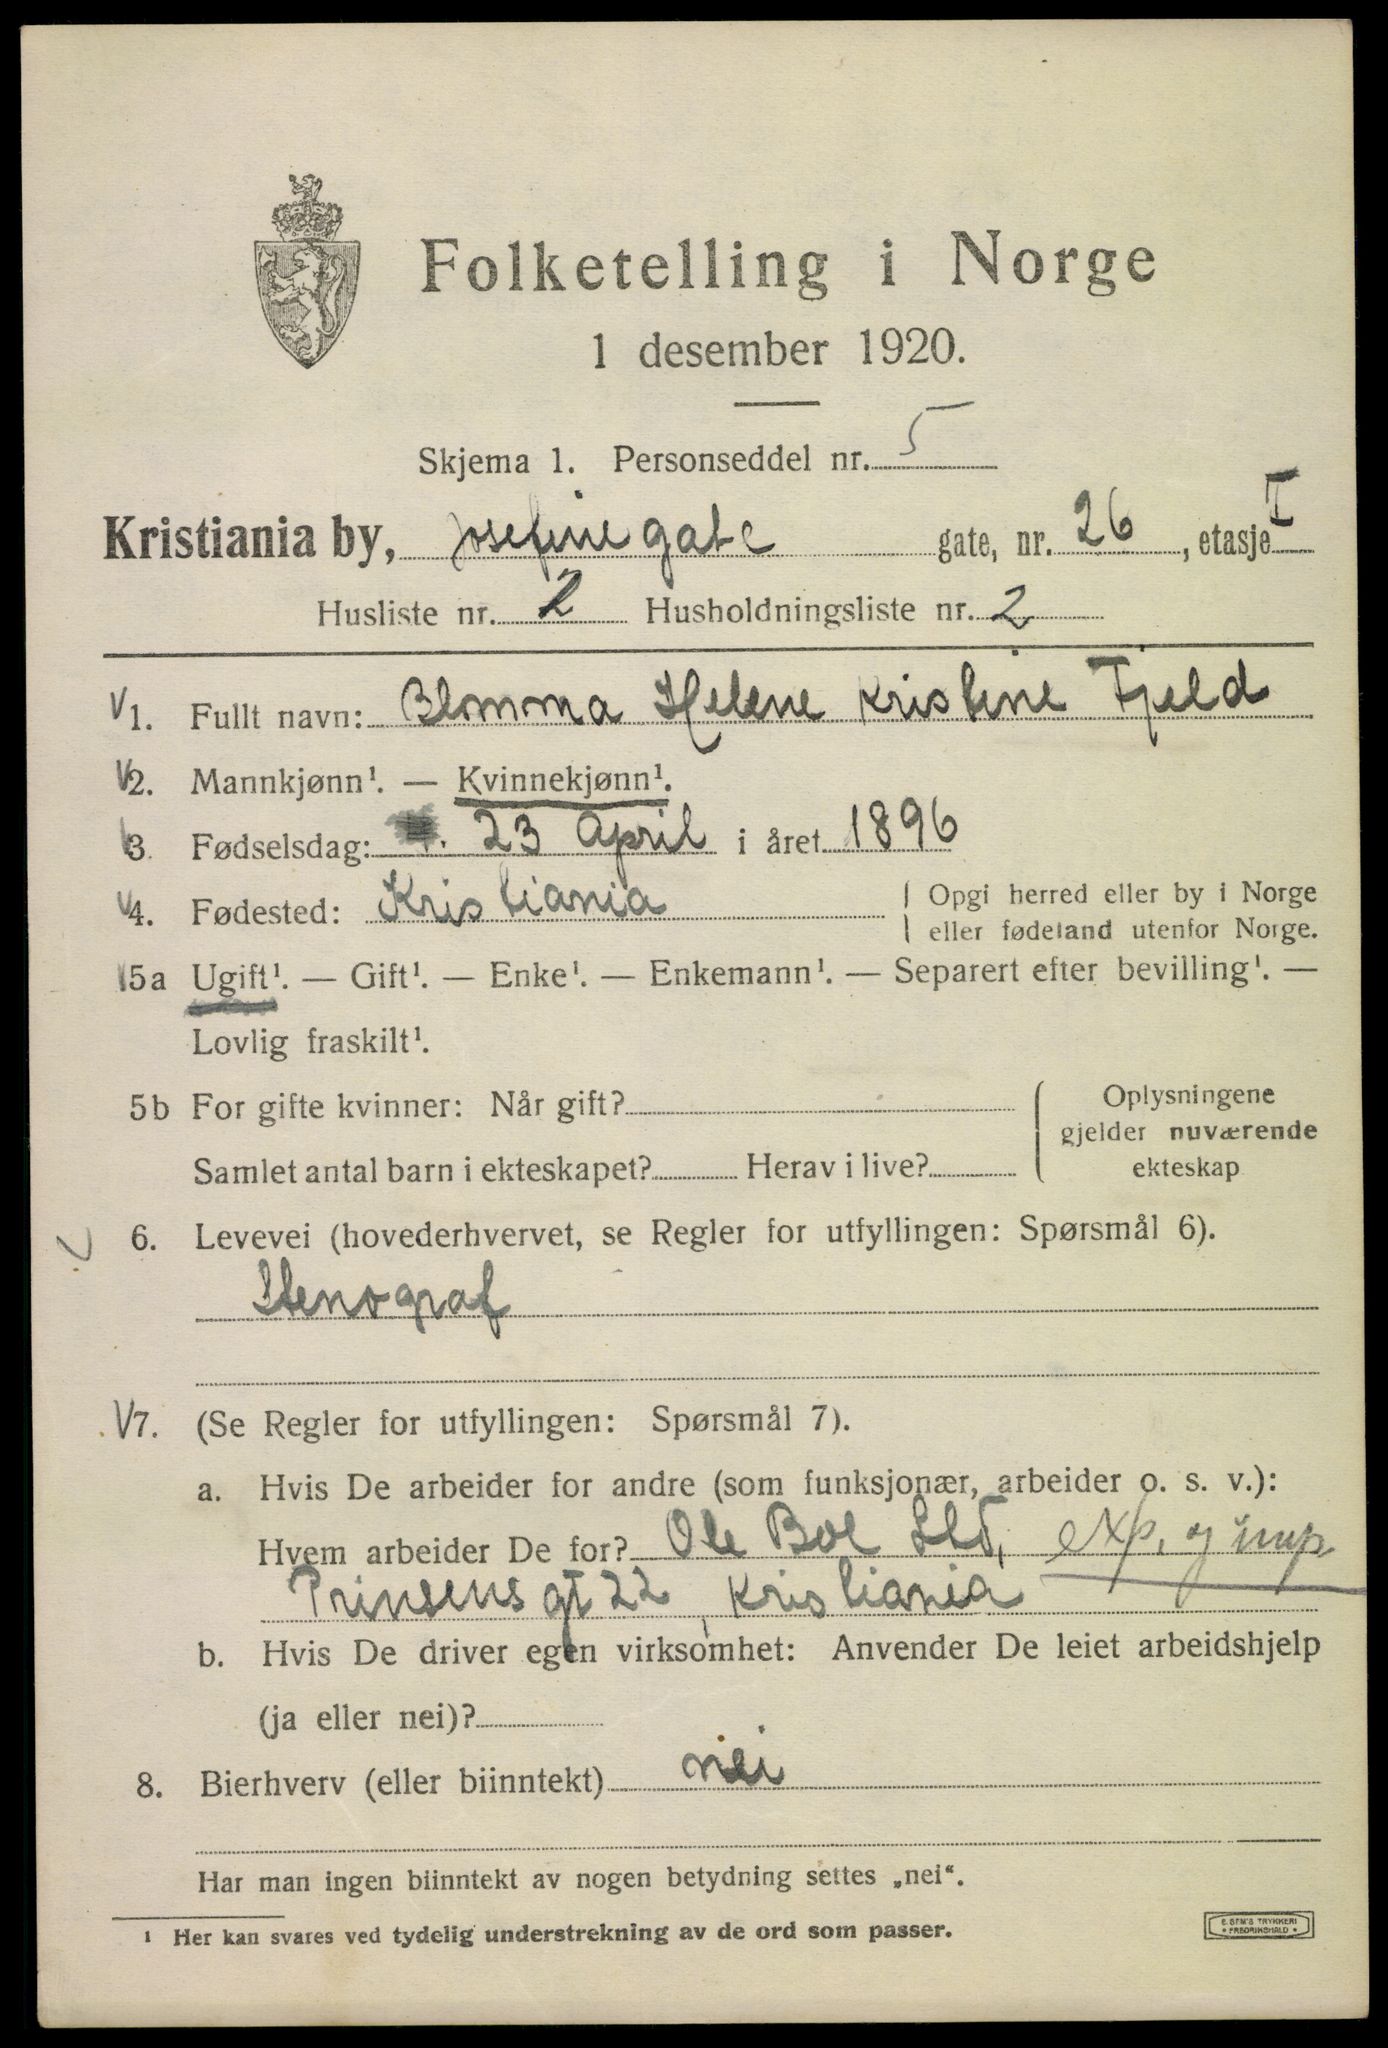 Folketelling i Norge
1 desember 1920.
Skjema 1. Personseddel nr. 5
Kristiania by, Josefinegate gate, nr. 26, etasje I
Husliste nr. 2 Husholdningsliste nr. 2
V 1. Fullt navn: Blomma Helene Kristine Fjeld
V 2. Mannkjønn¹. — Kvinnekjønn¹.
3. Fødselsdag: 23 April i året 1896
V 4. Fødested: Kristiania
Opgi herred eller by i Norge
eller fødeland utenfor Norge.
5a Ugift¹. — Gift¹. — Enke¹. — Enkemann¹. — Separert efter bevilling¹. —
Lovlig fraskilt¹.
5b For gifte kvinner: Når gift?
Samlet antal barn i ekteskapet? Herav i live?
Oplysningene
gjelder nuværende
ekteskap
6. Levevei (hovederhvervet, se Regler for utfyllingen: Spørsmål 6).
Stenograf
V 7. (Se Regler for utfyllingen: Spørsmål 7).
a. Hvis De arbeider for andre (som funksjonær, arbeider o. s. v.):
Hvem arbeider De for? Ole Boe Ltd, exp. og imp.
Prinsens gt 22, Kristiania
b. Hvis De driver egen virksomhet: Anvender De leiet arbeidshjelp
(ja eller nei)?
8. Bierhverv (eller biinntekt) nei
Har man ingen biinntekt av nogen betydning settes „nei“.
¹ Her kan svares ved tydelig understrekning av de ord som passer.
E. SEM'S TRYKKERI
• FREDRIKSHALD •